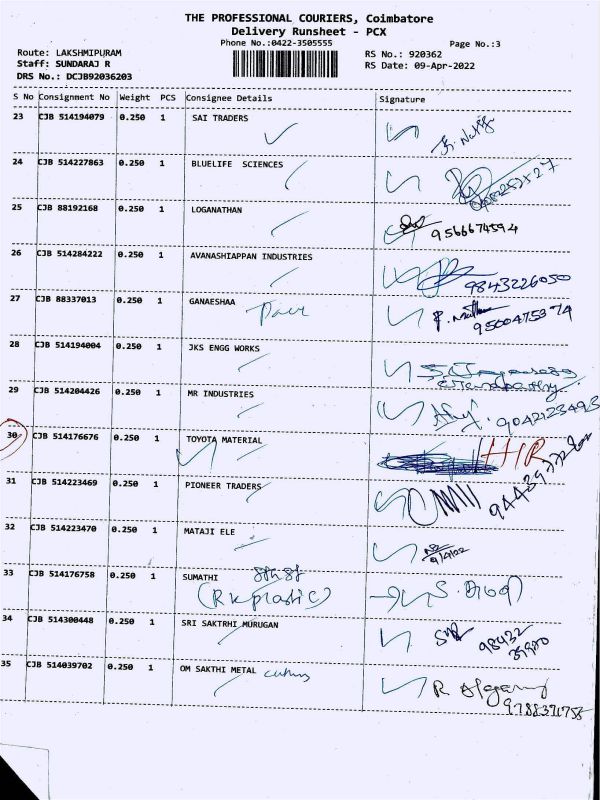 THE PROFESSIONAL COURIERS, Coimbatore
Delivery Runsheet - PCX
Phone No.:0422-3505555
Page No.:3
Route: LAKSHMIPURAM
RS No.: 920362
Staff: SUNDARAJ R
RS Date: 09-Apr-2022
DRS No.: DCJB92036203
S No Consignment No Weight PCS Consignee Details Signature
23 CJB 514194079 0.250 1 SAI TRADERS
24 CJB 514227863 0.250 1 BLUELIFE SCIENCES
25 CJB 88192168 0.250 1 LOGANATHAN
9566674594
26 CJB 514284222 0.250 1 AVANASHIAPPAN INDUSTRIES
9843226050
27 CJB 88337013 0.250 1 GANAESHAA
9500475374
28 CJB 514194004 0.250 1 JKS ENGG WORKS
29 CJB 514204426 0.250 1 MR INDUSTRIES
9042123493
30 CJB 514176676 0.250 1 TOYOTA MATERIAL
31 CJB 514223469 0.250 1 PIONEER TRADERS
32 CJB 514223470 0.250 1 MATAJI ELE
9/4/22
33 CJB 514176758 0.250 1 SUMATHI
(RK plastic)
34 CJB 514300448 0.250 1 SRI SAKTRHI MURUGAN
98432
35 CJB 514039702 0.250 1 OM SAKTHI METAL
9788371758